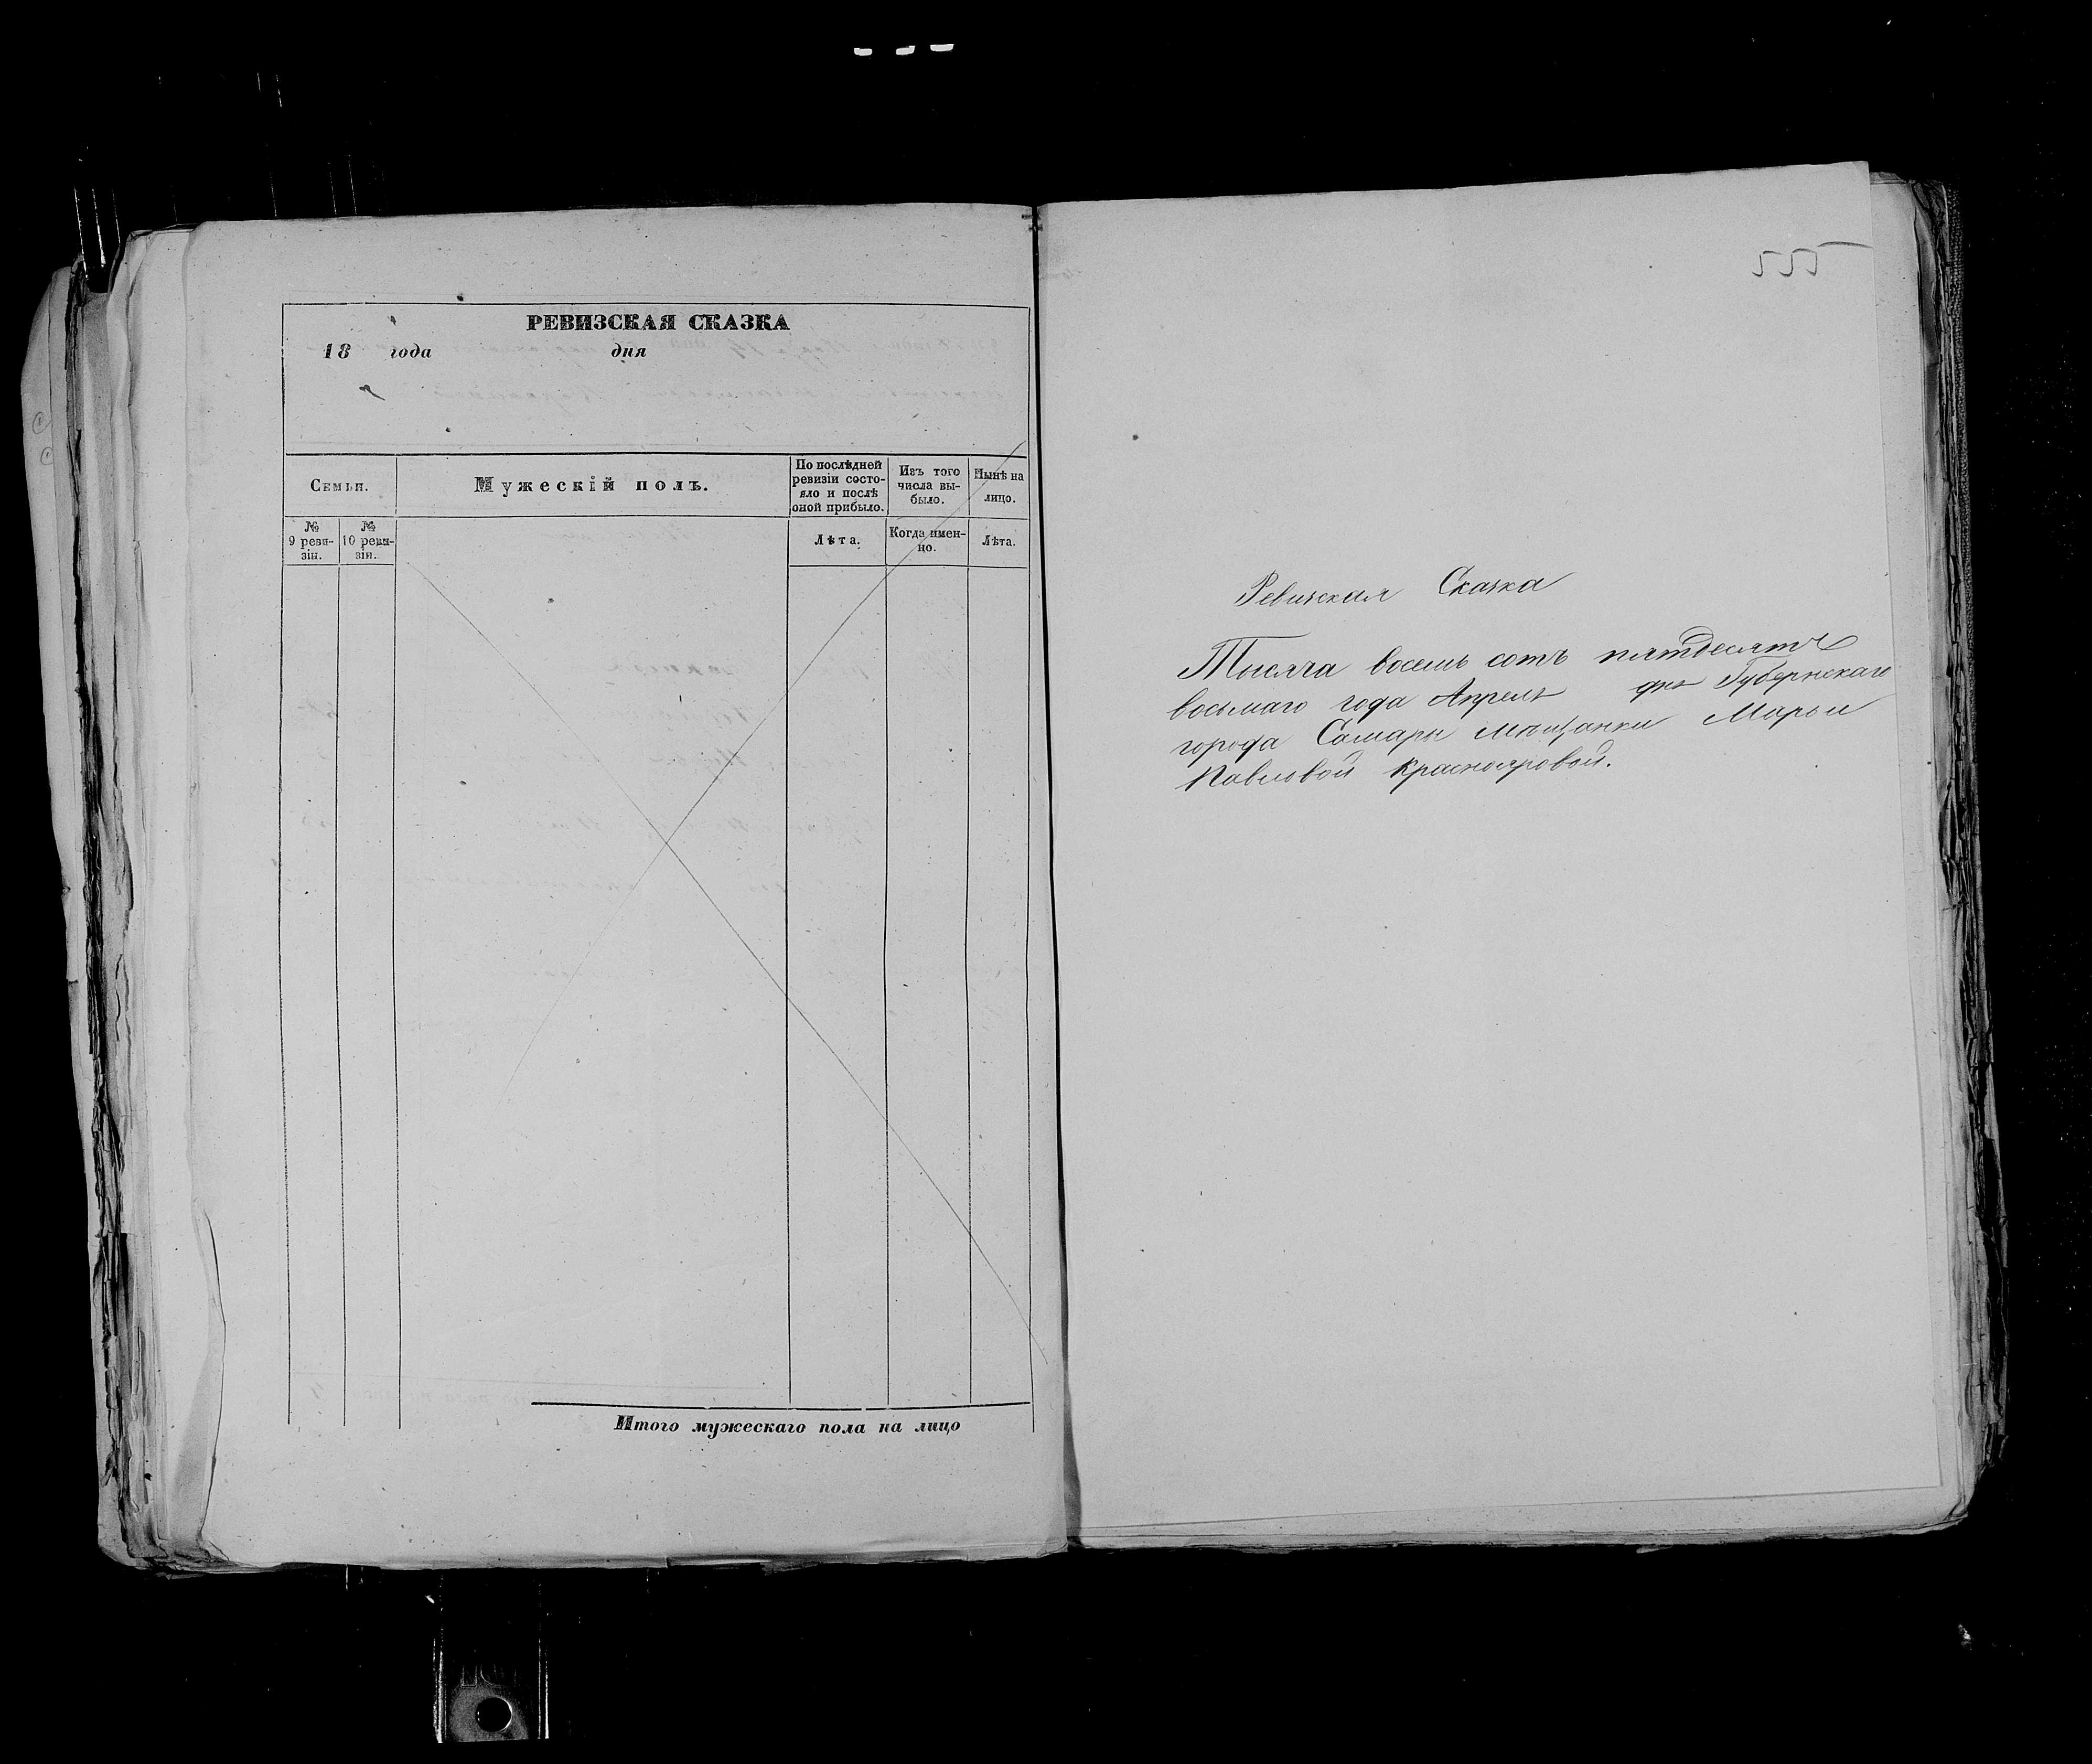 РЕВИЗСКАЯ СКАЗКА
18 года дня
Семьи.
Мужескій полъ.
По послѣдней ревизіи состояло и послѣ оной прибыло.
Изъ того числа выбыло.
Нынѣ на лицо.
№ 9 ревизіи.
№ 10 ревизіи.
Лѣта.
Когда именно.
Лѣта.
Итого мужескаго пола на лицо
555
Ревизская Сказка
Тысяча восемь сотъ пятдесятъ
восьмаго года Апреля дня Губернскаго
города Самары мѣщанки Марьи
Павловой Краснояровой.